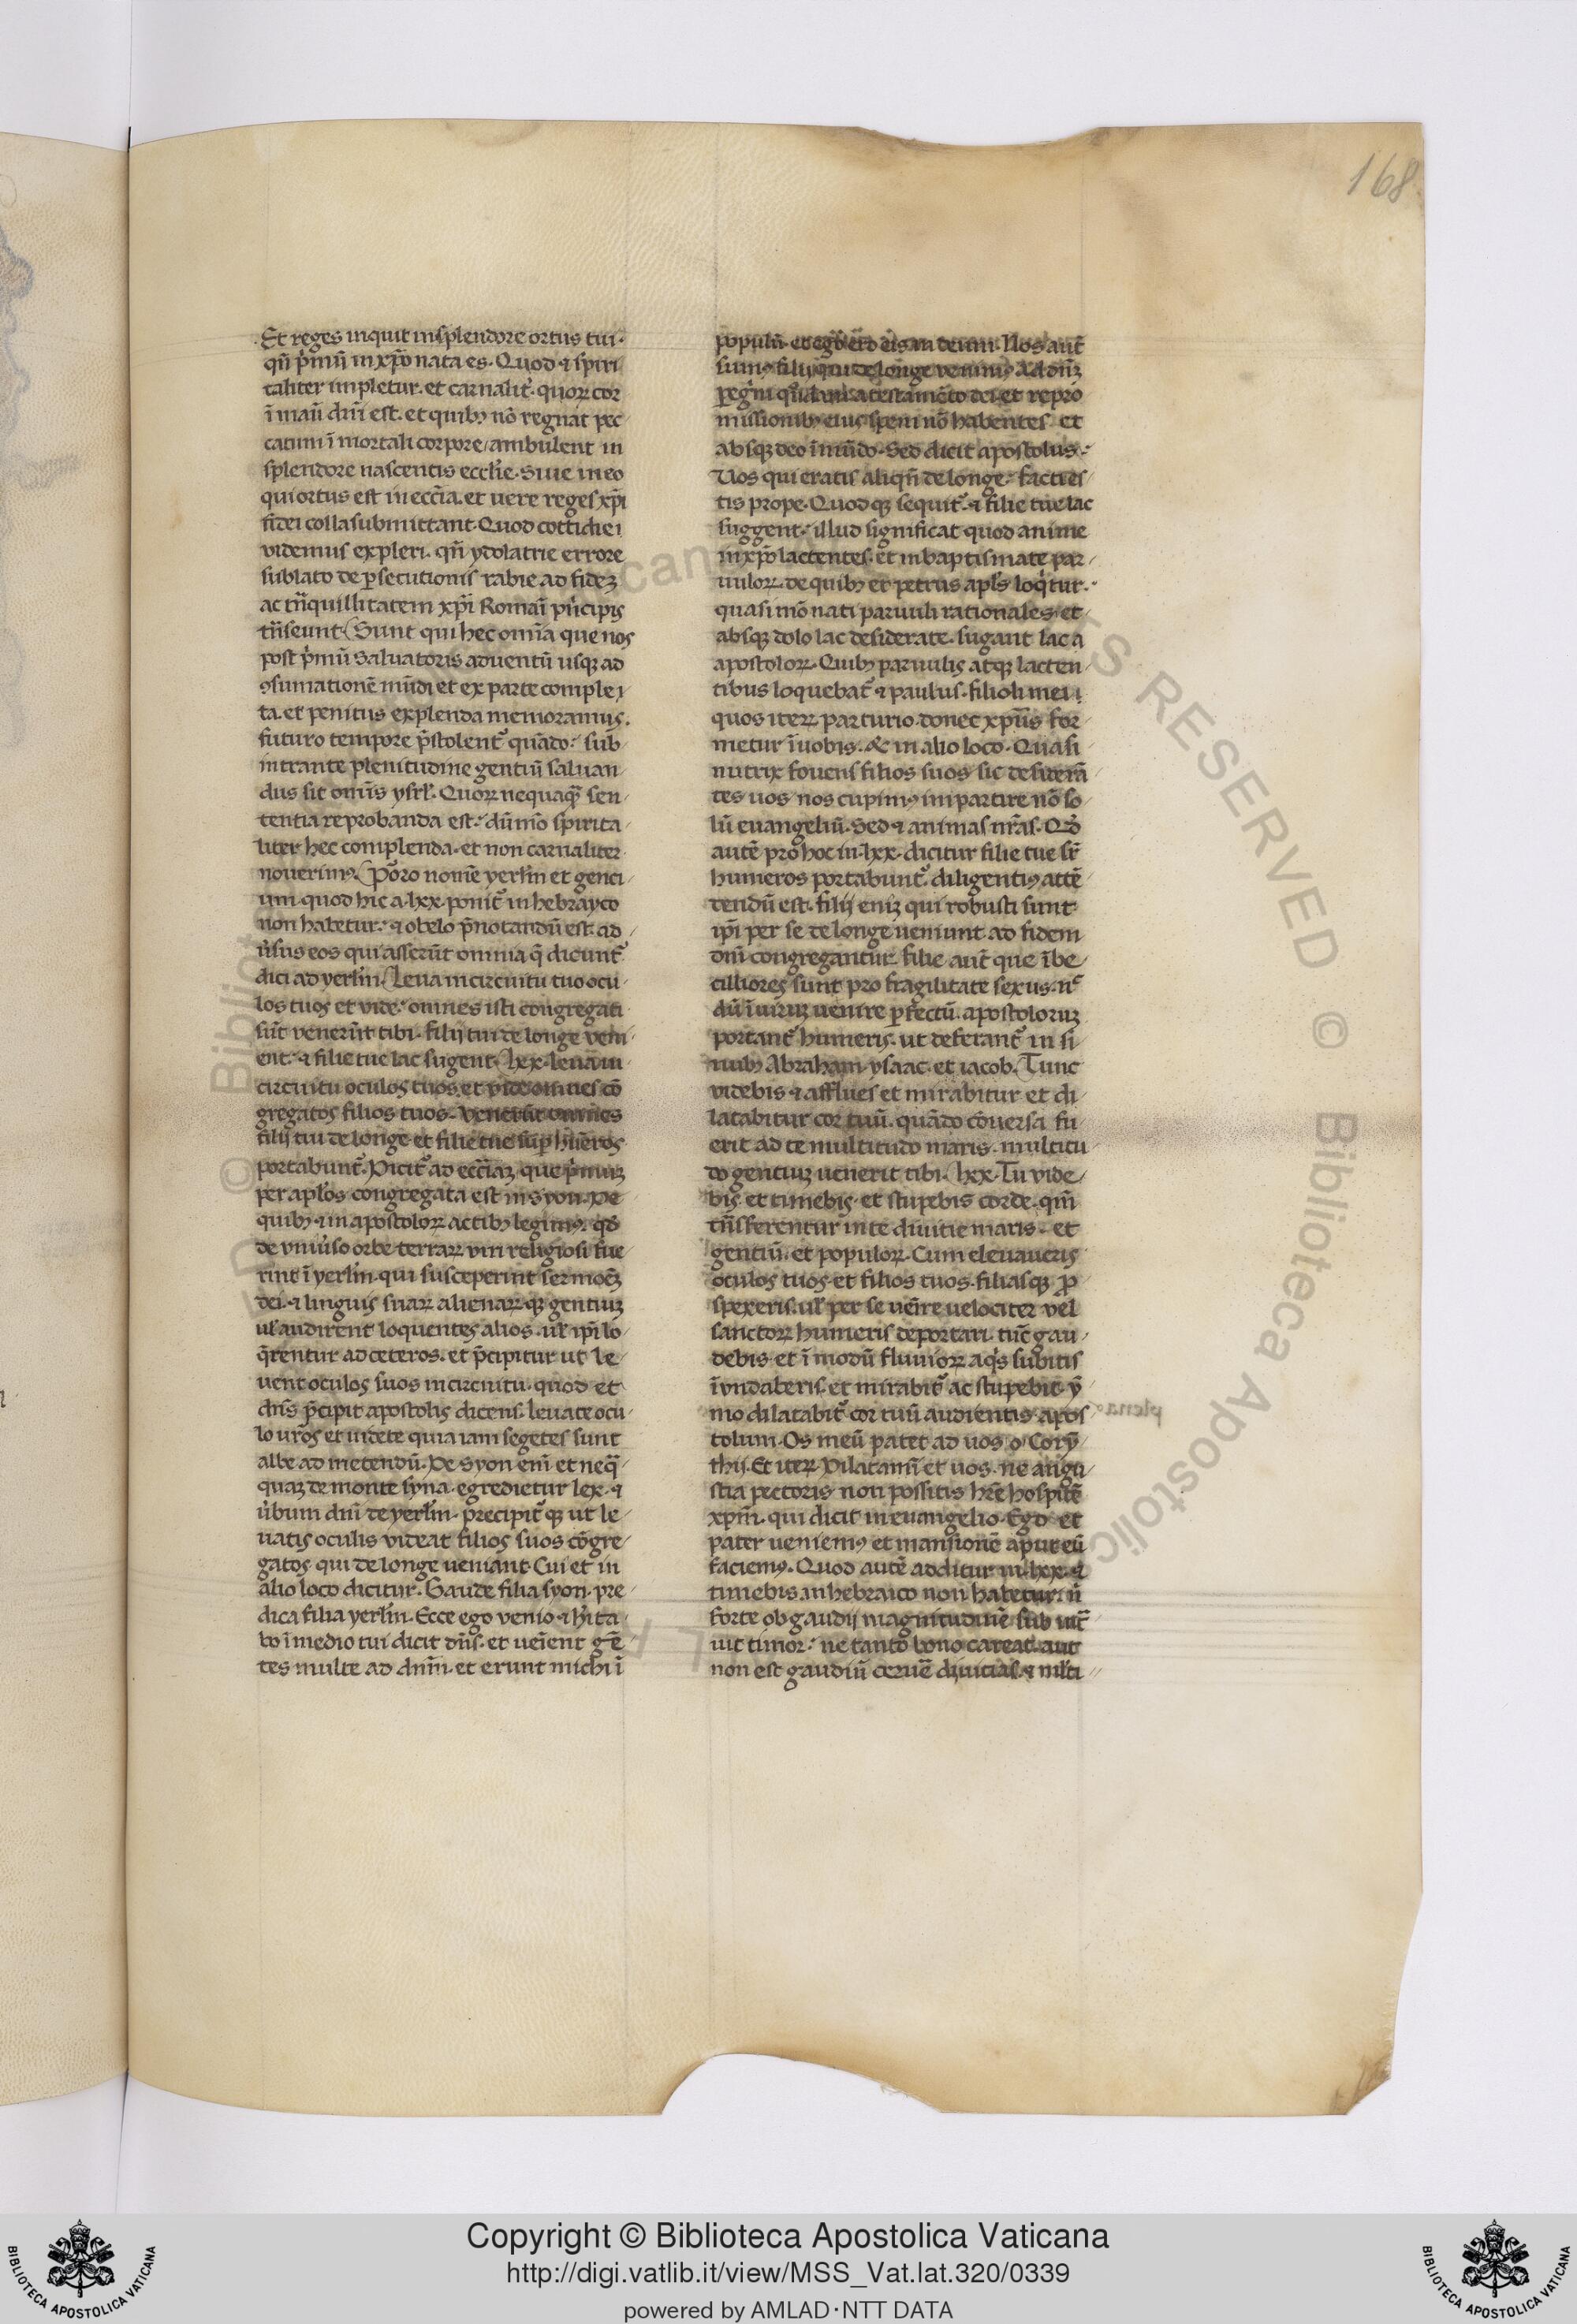 168
Et reges inquit in splendore ortus tui·
qn̄ p̍mū in xp̄o nata es· Quod ⁊ spiri
taliter impletur· et carnalit̉· quoꝝ cor
ī manū dn̄i est· et quibꝫ nō regnat pec
catum ī mortali corpore/ ambulent in
splendore nascentis eccl̄ie· Siue in eo
qui ortus est in ecc̄ia· et uere reges xp̄i
fidei colla submittant· Quod cottidie
videmus expleri· qn̄ ydolatrie errore
sublato de ꝑsecutionis rabie ad fideꝫ
ac tn̄quillitatem xp̄i Romai p̍ncipis
tn̄seunt· Sunt qui hec omīa que nos
post p̍mū Saluatoris aduentū usqꝫ ad
ꝯsumationē mūdi et ex parte comple
ta· et penitus explenda memoramus·
futuro tempore p̄stolent᷑ quādo· sub
intrante plenitudine gentiū saluan
dus sit omīs ysrl̄· Quoꝝ nequaqꝫ sen
tentia reprobanda est· dūmō spirita
liter hec complenda· et non carnaliter
nouerimꝰ Porro nomē yerl̄m et genti
um quod hic a· lxx· ponit᷑ in hebrayco
non habetur· ⁊ obelo p̄notandū est ad
ūsus eos qui asserūt omnia q̄ dicunt᷑
dici ad yerl̄m Leua in circuitu tuo ocu
los tuos et vide· omnes isti congregati
sūt venerūt tibi· filij tui de longe veni
ent· ⁊ filie tue lac sugent· lxx· leua in
circuitu oculos tuos et vide omnes cō
gregatos filios tuos· venerūt omnes
filij tui de longe et filie tue suꝑ hūeros
portabunt᷑· Dicit᷑ ad ecc̄iaꝫ que p̍muꝫ
per apl̄os congregata est in syon· De
quibꝫ ⁊ in apostoloꝝ actibꝫ legimꝰ· qd̄
de vniūso orbe terraꝝ viri religiosi fue
rint ī yerl̄m· qui susceperint sermonē
dei· ⁊ linguis suaꝝ alienaꝝ qꝫ gentiuꝫ
ul̄ audirent loquentes alios· ul̄ ip̄i lo
q̄rentur ad ceteros· et p̄cipitur ut le
uent oculos suos in circuitu· quod et
dn̄s p̄cipit apostolis dicens· leuate ocu
lo ur̄os et uidete quia iam segetes sunt
albe ad metendū· De syon enī et neq̄
quaꝫ de monte syna· egredietur lex· ⁊
ūbum dn̄i de yerl̄m· precipit᷑ qꝫ ut le
uatis oculis videat filios suos cōgre
gatos qui de longe ueniant· Cui et in
alio loco dicitur· Gaude filia syon· pre
dica filia yerl̄m· Ecce ego venio ⁊ hīta
bo ī medio tui dicit dn̄s· et uenient gē
tes multe ad dn̄m· et erunt michi ī
populū· et ego ero eis in deum· Nos aut̄
sumꝰ filij qui de longe venimꝰ
missionibꝫ eius spem nō habentes· et
absqꝫ deo ī mūdo· Sed dicit apostolus·
Uos qui eratis aliqn̄ de longe· facti es
tis prope· Quod qꝫ sequit᷑· ⁊ filie tue lac
suggent· illud significat quod anime
in xp̄o lactentes· et in baptismate par
uuloꝝ· de quibꝫ et petrus apl̄s loq̍tur·
quasi mō nati paruuli rationales· et
absqꝫ dolo lac desiderate· sugant lac a
apostoloꝝ· Quibꝫ paruulis atqꝫ lacten
tibus loquebat᷑ ⁊ paulus· filioli mei
quos iteꝝ parturio· donec xp̄us for
metur ī uobis· & in alio loco· Quasi
nutrix fouens filios suos sic desiderā
tes uos nos cupimꝰ impartire nō so
lū euangeliū· Sed ⁊ animas nr̄as· Qd̄
autē pro hoc in· lxx· dicitur filie tue sr̄
humeros portabunt᷑· diligentiꝰ attē
tendū est· filij eniꝫ qui robusti sunt
ip̄i per se de longe ueniunt ad fidem
dn̄i congregantur· filie aut̄ que ībe
cilliores sunt pro fragilitate sexus· nͨ
dū ī uiruꝫ uenire ꝑfectū· apostoloruꝫ
portant᷑ humeris· ut deferant᷑ in si
nubꝫ Abraham· ysaac· et iacob· Tunc
videbis ⁊ afflues et mirabitur et di
latabitur cor tuū· quādo cōuersa fu
erit ad te multitudo maris· multitu
do gentiuꝫ uenerit tibi· lxx· Tu vide
bis· et timebis· et stupebis corde· qm̄
tn̄sferentur in te diuitie maris· et
gentiū· et populoꝝ· Cum eleuaueris
oculos tuos· et filios tuos· filiasqꝫ ꝓ
spexeris· ul̄ per se uenire uelociter vel
sanctoꝝ humeris deportari· tūc gau
debis· et ī modū fluuioꝝ aq̍s subitis
īundaberis· et mirabit᷑ ac stupebit· ȳ
mo dilatabit᷑ cor tuū audientis· apos
tolum· Os meū patet ad uos o Cory
thij· Et iteꝝ Dilatamī et uos· ne angu
stia pectoris non possitis hr̄e hospitē
xp̄m· qui dicit in euangelio· Ego et
pater ueniemꝰ et mansionē aput eū
faciemꝰ· Quod autē additur in· lxx· ⁊
timebis in hebraico non habetur·
forte ob gaudij magnitudinē
uit timor· ne tanto bono careat· aut
non est gaudiū
Copyright © Biblioteca Apostolica Vaticana
http://digi.vatlib.it/view/MSS_Vat.lat.320/0339
powered by AMLAD·NTT DATA
BIBLIOTECA APOSTOLICA VATICANA
BIBLIOTECA APOSTOLICA VATICANA